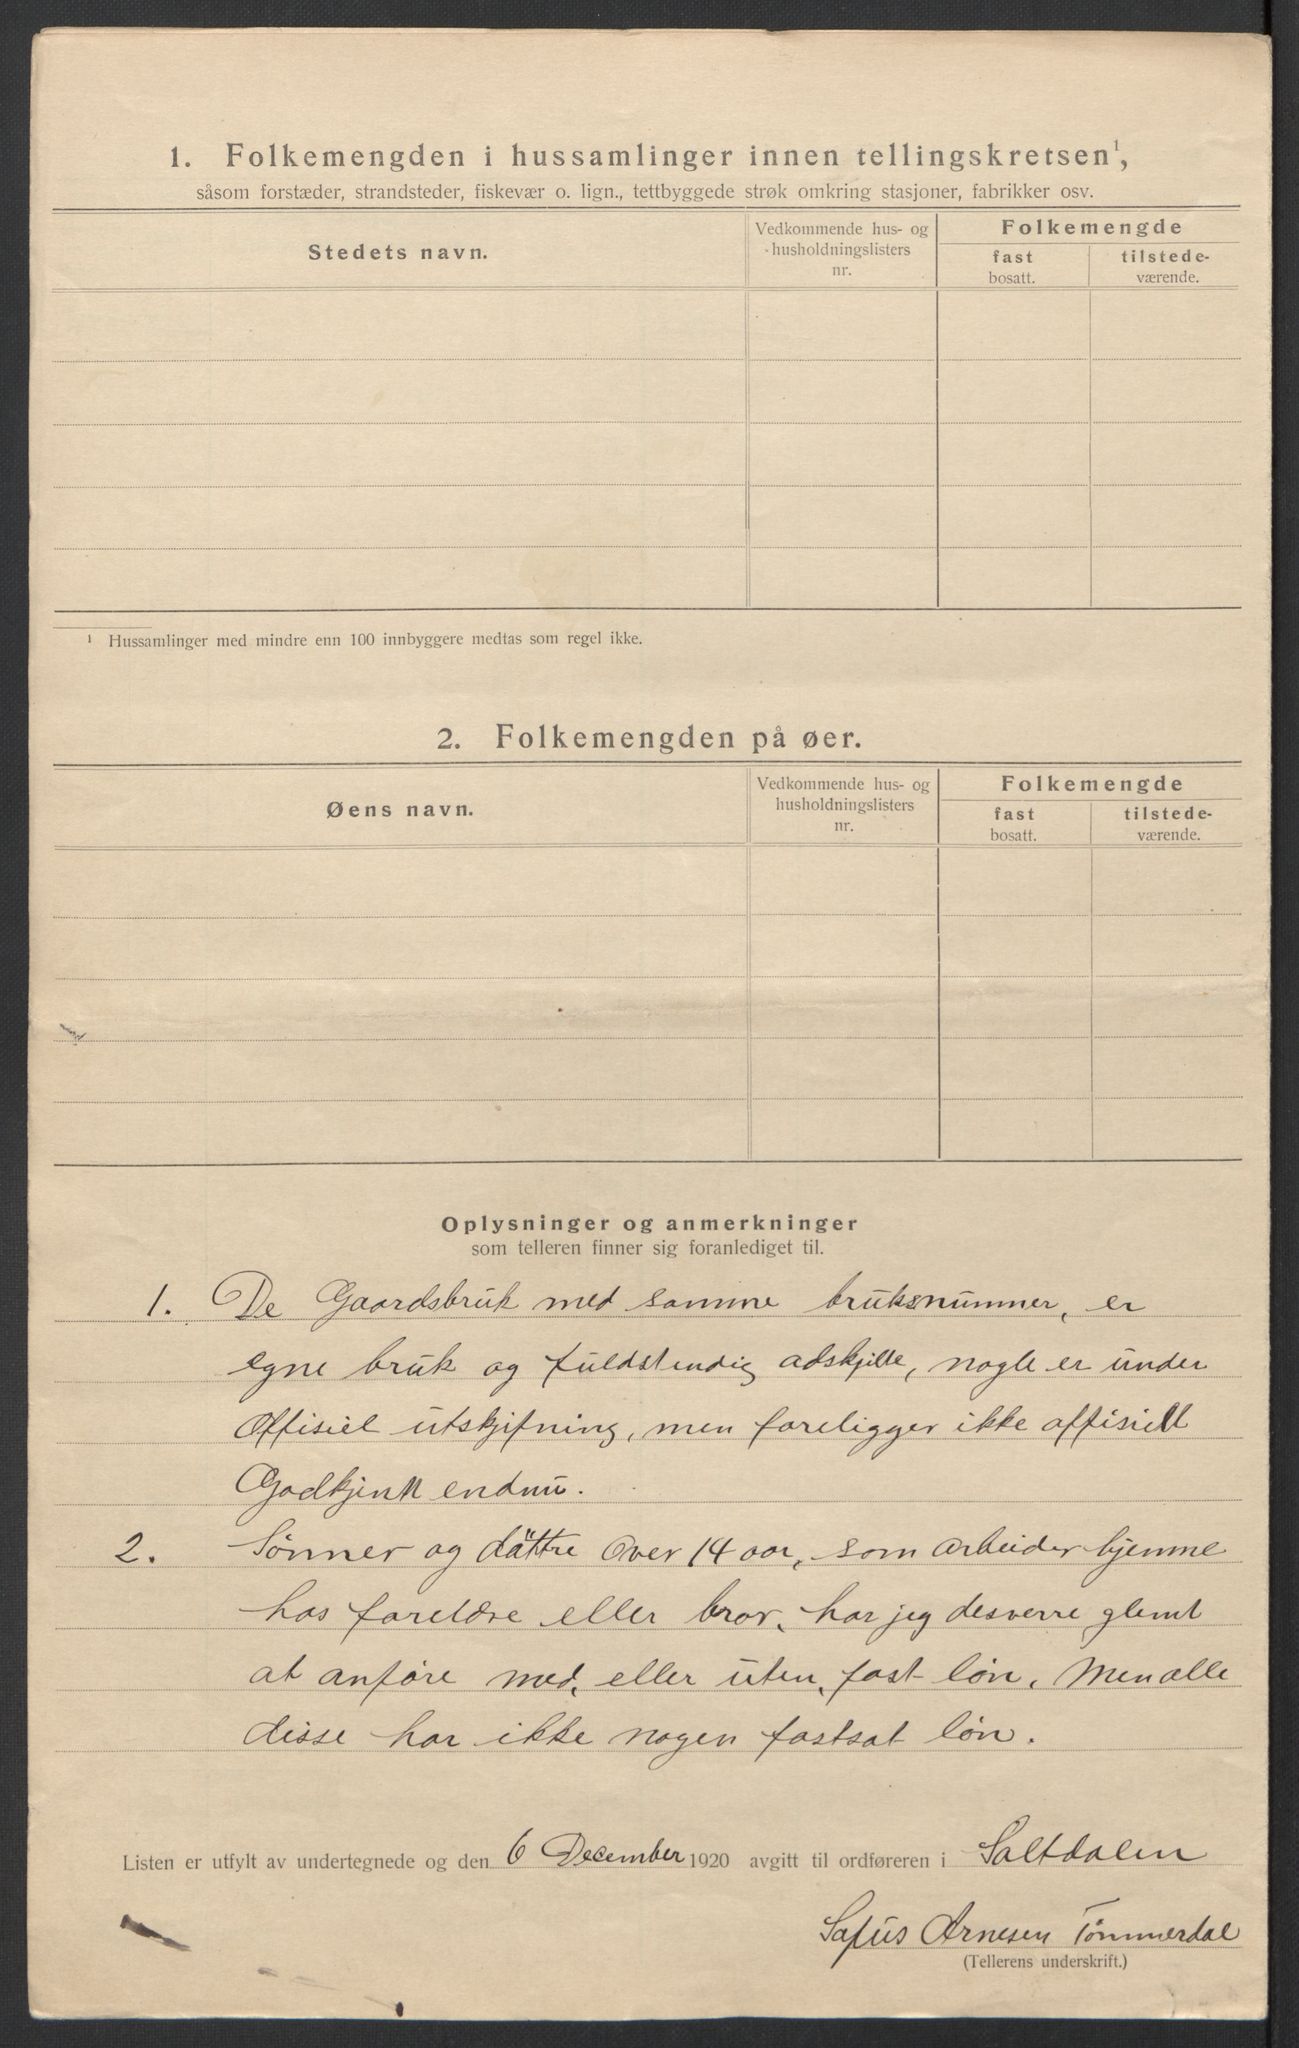 1. Folkemengden i hussamlinger innen tellingskretsen¹,
såsom forstæder, strandsteder, fiskevær o. lign., tettbyggede strøk omkring stasjoner, fabrikker osv.
Stedets navn.
Vedkommende hus- og
husholdningslisters
nr.
Folkemengde
fast
bosatt.
tilstede-
værende.
¹ Hussamlinger med mindre enn 100 innbyggere medtas som regel ikke.
2. Folkemengden på øer.
Øens navn.
Vedkommende hus- og
husholdningslisters
nr.
Folkemengde
fast
bosatt.
tilstede-
værende.
Oplysninger og anmerkninger
som telleren finner sig foranlediget til.
1. De Gaardsbruk med samme bruksnummer, er
egne bruk og fuldstendig adskjilte, nogle er under
Offisiel utskjifning, men foreligger ikke offisiell
Godkjent endnu.
2. Sønner og døttre over 14 aar, som arbeider hjemme
hos foreldre eller bror, har jeg desverre glemt
at anføre med, eller uten, fast løn. Men alle
disse har ikke nogen fastsat løn.
Listen er utfylt av undertegnede og den 6 December 1920 avgitt til ordføreren i Saltdalen
Arnesen Tømmerdal
(Tellerens underskrift.)